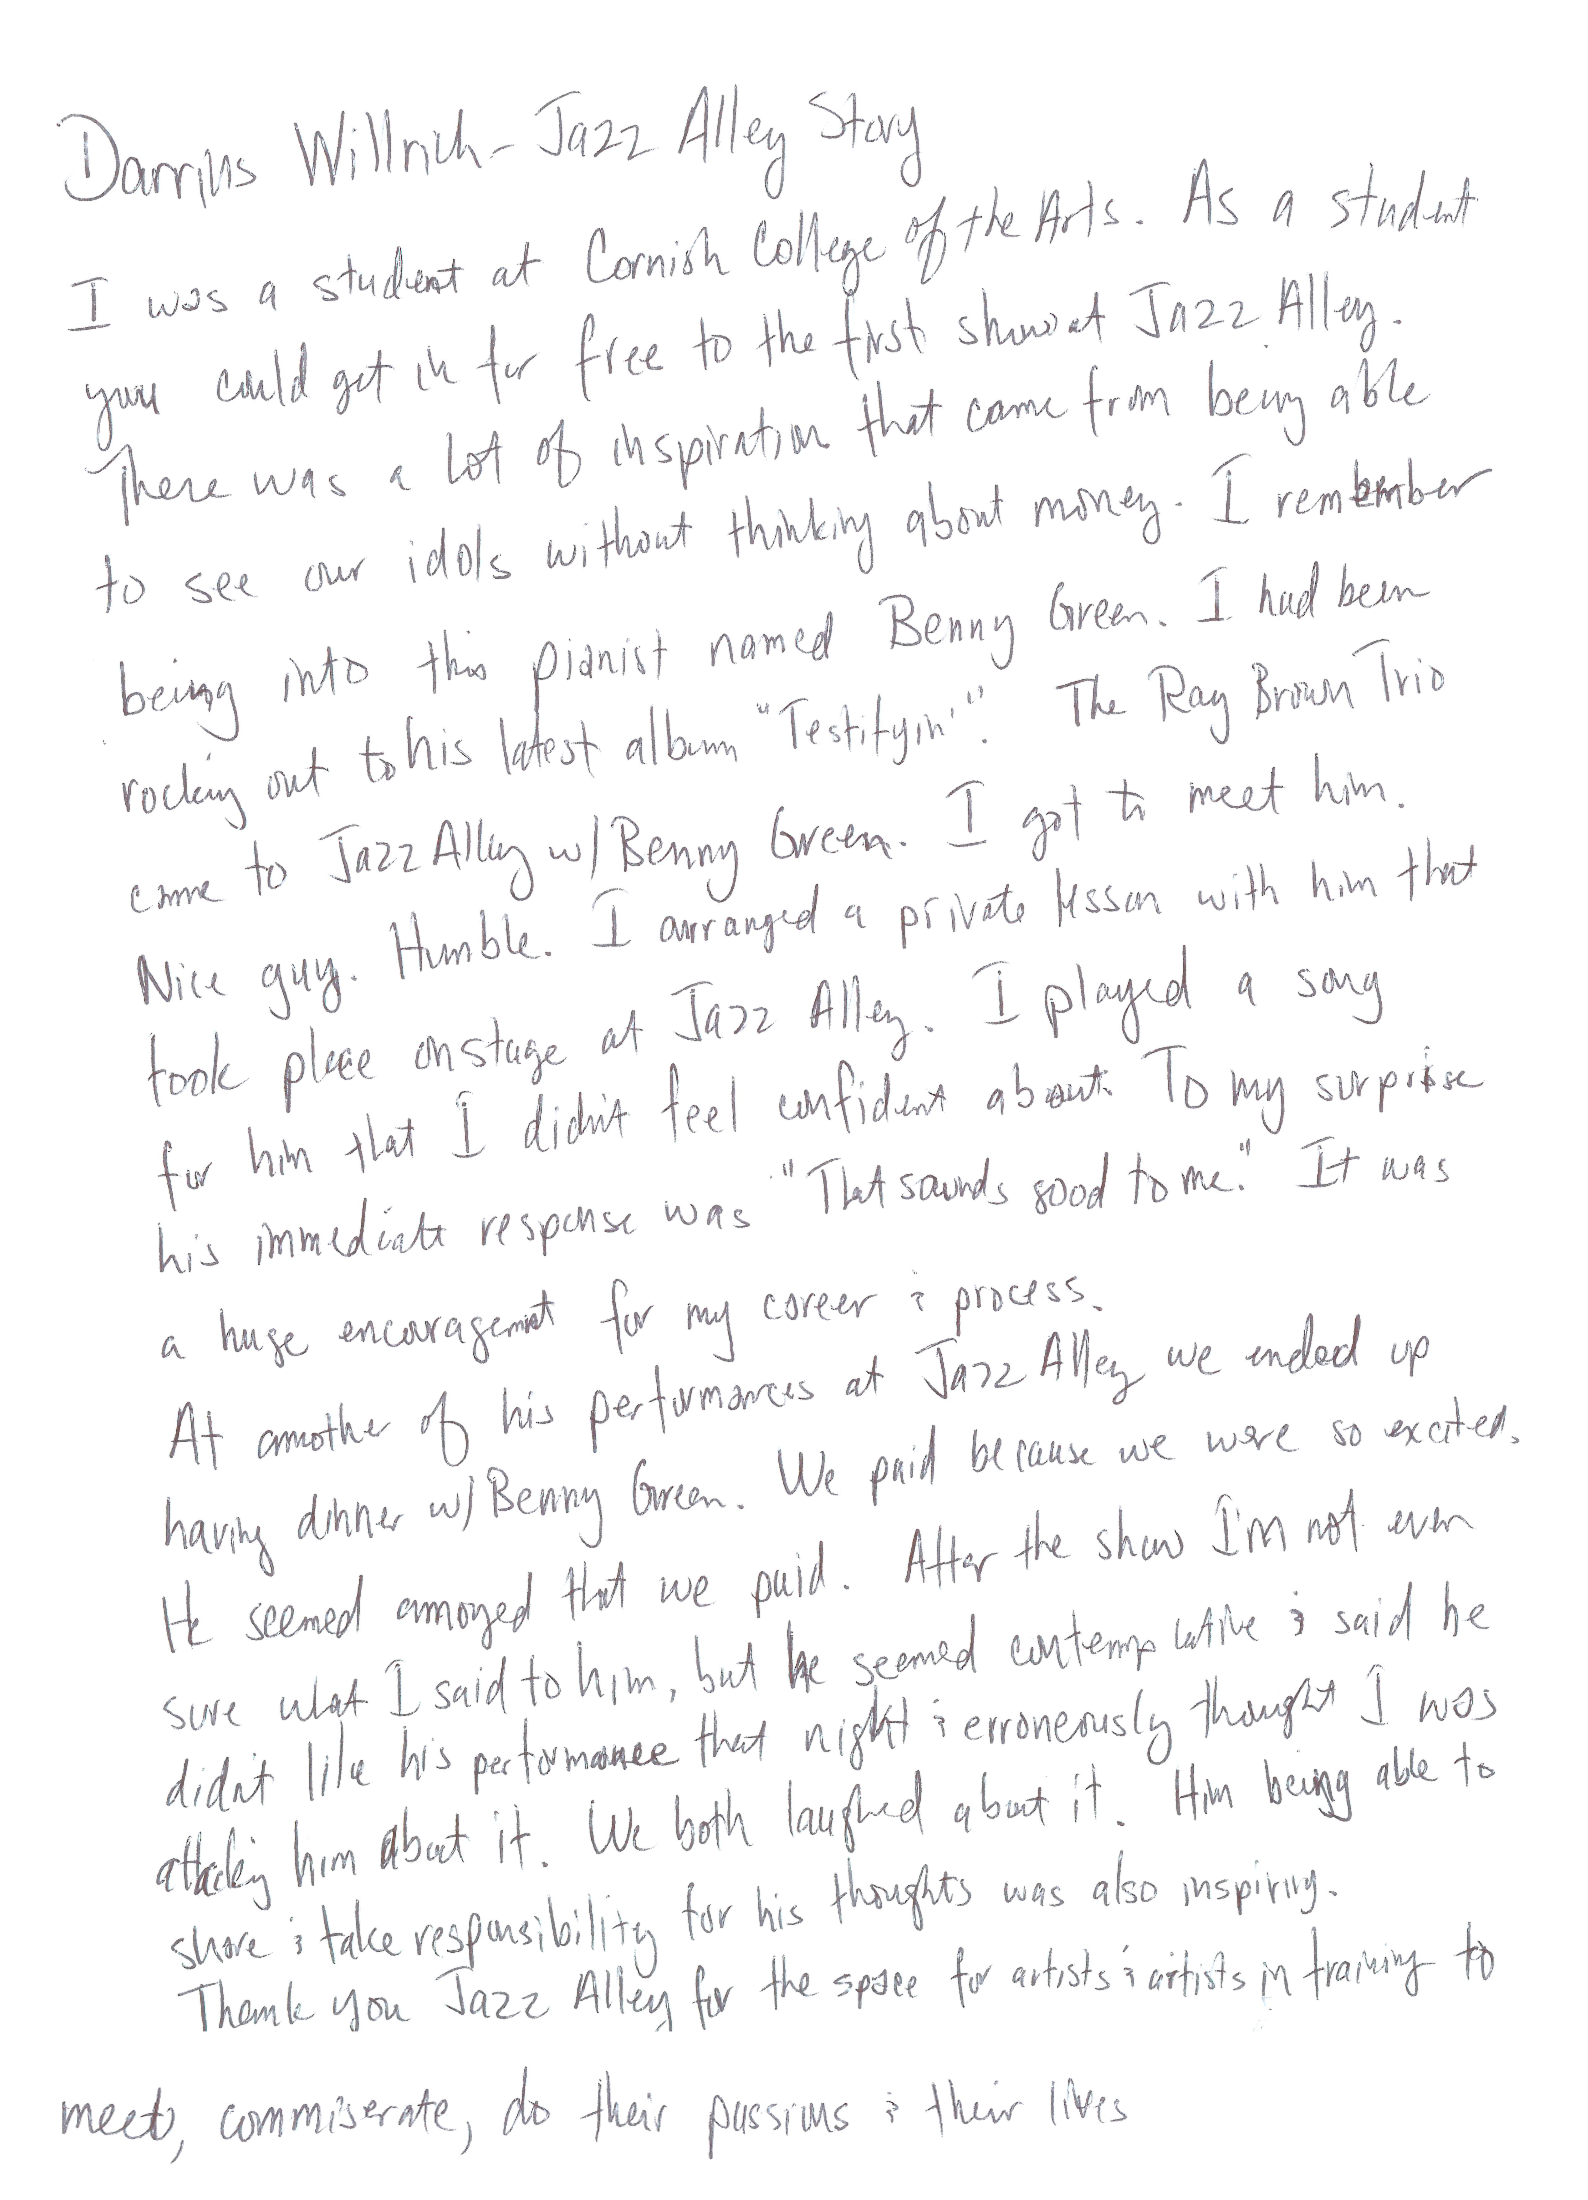 Darrius Willrich - Jazz Alley Story
I was a student at Cornish College of the Arts. As a student
you could get in for free to the first show at Jazz Alley.
There was a lot of inspiration that came from being able
to see our idols without thinking about money. I remember
being into this pianist named Benny Green. I had been
rocking out to his latest album "Testifyin'". The Ray Brown Trio
came to Jazz Alley w/ Benny Green. I got to meet him.
Nice guy. Humble. I arranged a private lesson with him that
took place onstage at Jazz Alley. I played a song
for him that I didn't feel confident about. To my surprise
his immediate response was "That sounds good to me." It was
a huge encouragement for my career & process.
At another of his performances at Jazz Alley we ended up
having dinner w/ Benny Green. We paid because we were so excited.
He seemed annoyed that we paid. After the show I'm not even
sure what I said to him, but he seemed contemplative & said he
didn't like his performance that night & erroneously thought I was
attacking him about it. We both laughed about it. Him being able to
share & take responsibility for his thoughts was also inspiring.
Thank you Jazz Alley for the space for artists & artists in training to
meet, commiserate, do their passions & their lives